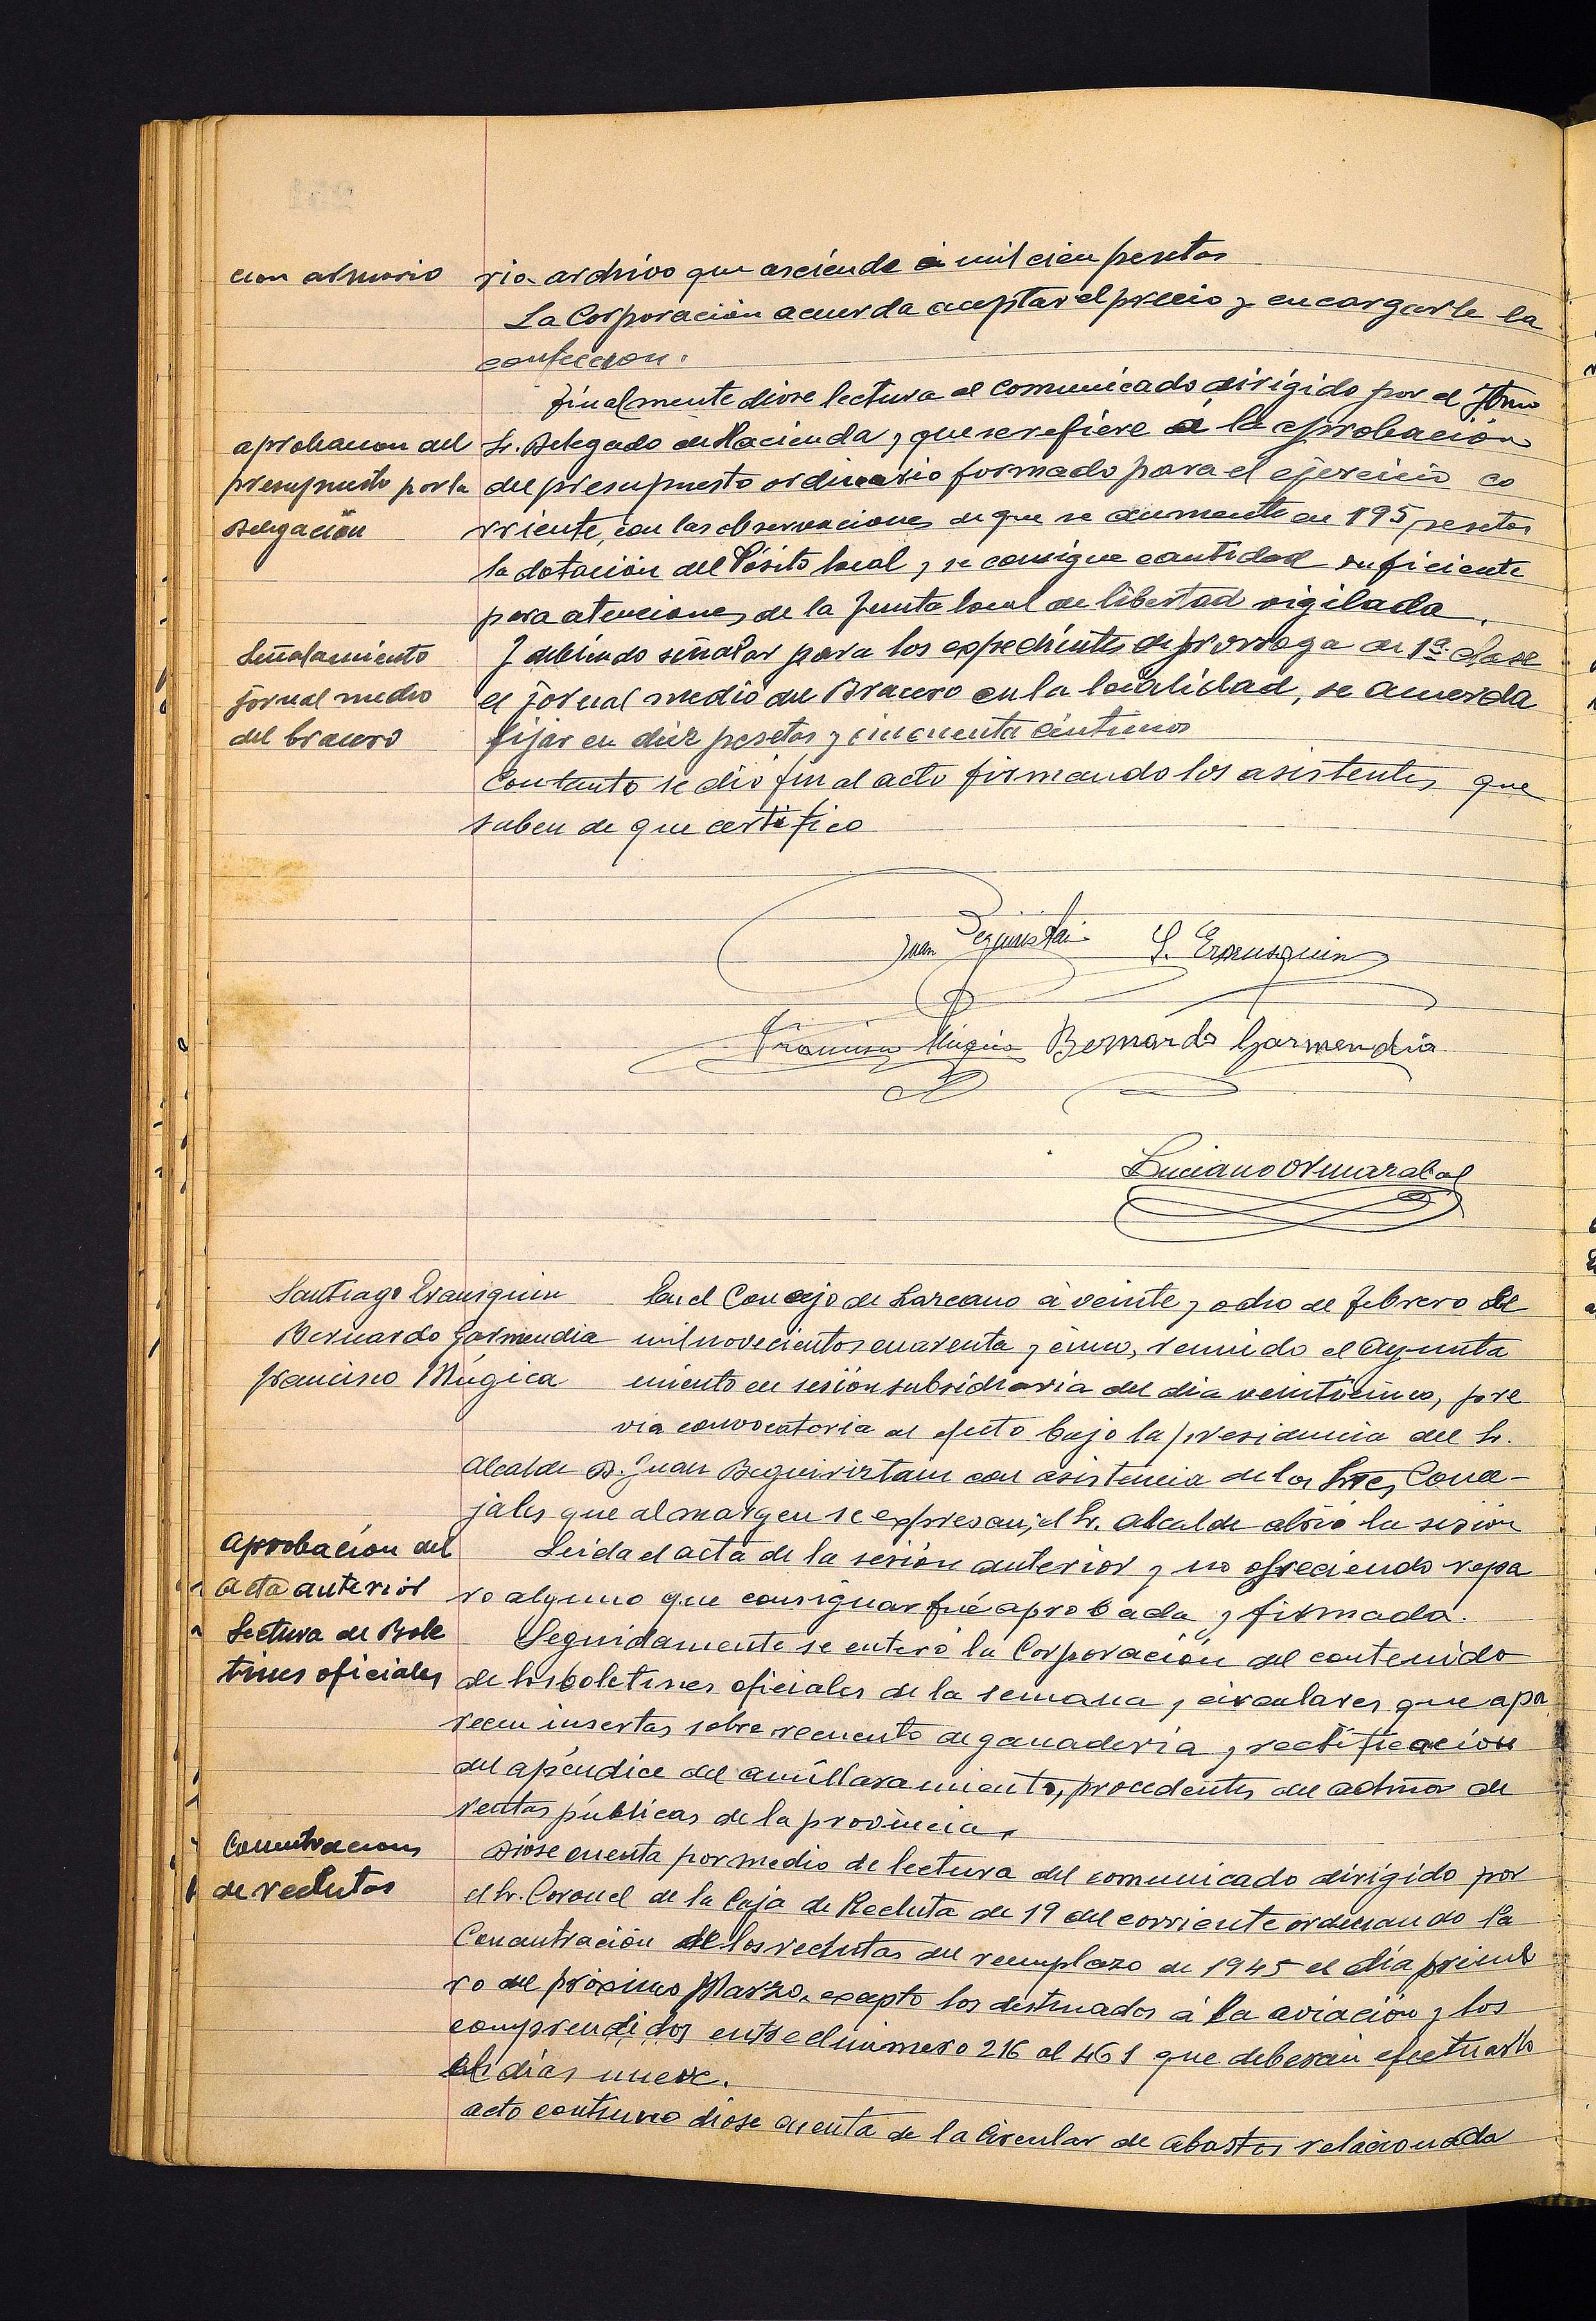 cion armario
rio archivo que asciende á mil cien pesetas
La Corporación acuerda aceptar el precio y encargarle la
confeccion.
Finalmente diose lectura al comunicado dirigido por el Iltmo
aprobacion del
Sr. Delegado de Hacienda, que se refiere á la aprobación
presupuesto por la
del presupuesto ordinario formado para el ejercicio co
Delegación
rriente, con las observaciones de que se aumente en 195 pesetas
la dotación del Pósito local y se consigne cantidad suficiente
para atenciones de la Junta local de libertad vigilada.
Señalamiento
Y debiendo señalar para los expedientes de prorroga de 1ª clase
jornal medio
el jornal medio del Bracero en la localidad, se acuerda
del bracero
fijar en diez pesetas y cincuenta céntimos
Con tanto se dió fin al acto firmando los asistentes que
saben de que certifico
Juan Beguiristain S. Erausquin
Francisco Múgica Bernardo Garmendia
Luciano Amarabal
Santiago Erausquin
Bernardo Garmendia
Francisco Múgica
En el Concejo de Lazcano á veinte y ocho de Febrero de
mil novecientos cuarenta y cinco, reunido el Ayunta
miento en sesión subsidiaria del dia veinticinco, pre
via convocatoria al efecto bajo la presidencia del Sr.
Alcalde D. Juan Beguiristain con asistencia de los Sres Conce-
jales que al margen se expresan, el Sr. alcalde abrió la sesion
Aprobación del
acta anterior
Leida el acta de la sesión anterior y no ofreciendo repa
ro alguno que consignar fué aprobada y firmada.
Lectura de Bole
tines oficiales
Seguidamente se enteró la Corporación del contenido
de los boletines oficiales de la semana y circulares que apa
recen insertas sobre recuento de ganaderia y rectificación
del apéndice del amillaramiento, procedentes de admón de
rentas públicas de la provincia.
Concentracion
de reclutas
Diose cuenta por medio de lectura del comunicado dirigido por
el Sr. Coronel de la Caja de Recluta de 19 del corriente ordenando la
Concentración de los reclutas del reemplazo de 1945 el día prime
ro del próximo Marzo, excepto los destinados á la aviación y los
comprendidos entre el número 216 al 461 que deberán efectuarlo
el dias nueve.
acto continuo diose cuenta de la Circular de Abastos relacionada